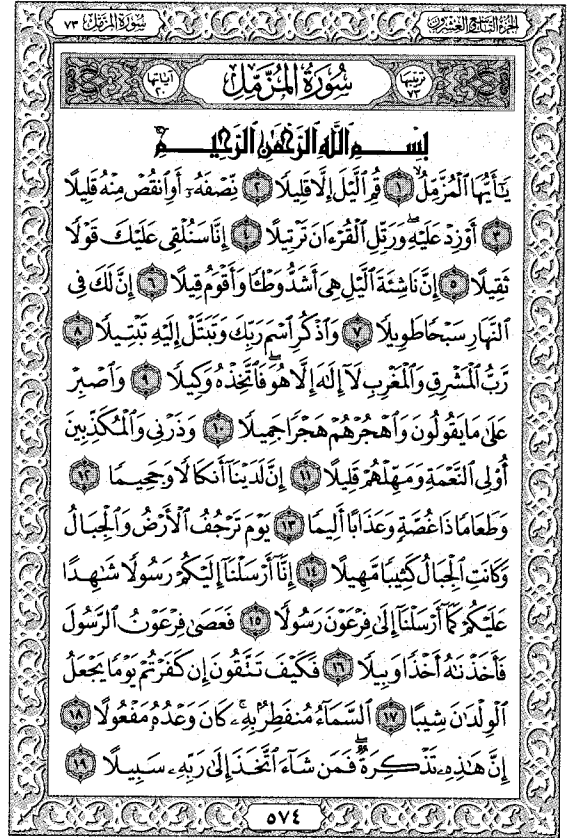 الجزء التاسع والعشرون
سورة المزمل ٧٣
ترتيبها ٧٣
سُورَةُ المُزَّمِّل
آياتها ٢٠
بِسْمِ اللَّهِ الرَّحْمَٰنِ الرَّحِيمِ
يَٰٓأَيُّهَا ٱلْمُزَّمِّلُ ١ قُمِ ٱلَّيْلَ إِلَّا قَلِيلًا ٢ نِّصْفَهُۥٓ أَوِ ٱنقُصْ مِنْهُ قَلِيلًا
٣ أَوْ زِدْ عَلَيْهِ وَرَتِّلِ ٱلْقُرْءَانَ تَرْتِيلًا ٤ إِنَّا سَنُلْقِى عَلَيْكَ قَوْلًا
ثَقِيلًا ٥ إِنَّ نَاشِئَةَ ٱلَّيْلِ هِىَ أَشَدُّ وَطْـًٔا وَأَقْوَمُ قِيلًا ٦ إِنَّ لَكَ فِى
ٱلنَّهَارِ سَبْحًا طَوِيلًا ٧ وَٱذْكُرِ ٱسْمَ رَبِّكَ وَتَبَتَّلْ إِلَيْهِ تَبْتِيلًا ٨
رَّبُّ ٱلْمَشْرِقِ وَٱلْمَغْرِبِ لَآ إِلَٰهَ إِلَّا هُوَ فَٱتَّخِذْهُ وَكِيلًا ٩ وَٱصْبِرْ
عَلَىٰ مَا يَقُولُونَ وَٱهْجُرْهُمْ هَجْرًا جَمِيلًا ١٠ وَذَرْنِى وَٱلْمُكَذِّبِينَ
أُو۟لِى ٱلنَّعْمَةِ وَمَهِّلْهُمْ قَلِيلًا ١١ إِنَّ لَدَيْنَآ أَنكَالًا وَجَحِيمًا ١٢
وَطَعَامًا ذَا غُصَّةٍ وَعَذَابًا أَلِيمًا ١٣ يَوْمَ تَرْجُفُ ٱلْأَرْضُ وَٱلْجِبَالُ
وَكَانَتِ ٱلْجِبَالُ كَثِيبًا مَّهِيلًا ١٤ إِنَّآ أَرْسَلْنَآ إِلَيْكُمْ رَسُولًا شَٰهِدًا
عَلَيْكُمْ كَمَآ أَرْسَلْنَآ إِلَىٰ فِرْعَوْنَ رَسُولًا ١٥ فَعَصَىٰ فِرْعَوْنُ ٱلرَّسُولَ
فَأَخَذْنَٰهُ أَخْذًا وَبِيلًا ١٦ فَكَيْفَ تَتَّقُونَ إِن كَفَرْتُمْ يَوْمًا يَجْعَلُ
ٱلْوِلْدَٰنَ شِيبًا ١٧ ٱلسَّمَآءُ مُنفَطِرٌۢ بِهِۦ ۚ كَانَ وَعْدُهُۥ مَفْعُولًا ١٨
إِنَّ هَٰذِهِۦ تَذْكِرَةٌ ۖ فَمَن شَآءَ ٱتَّخَذَ إِلَىٰ رَبِّهِۦ سَبِيلًا ١٩
٥٧٤